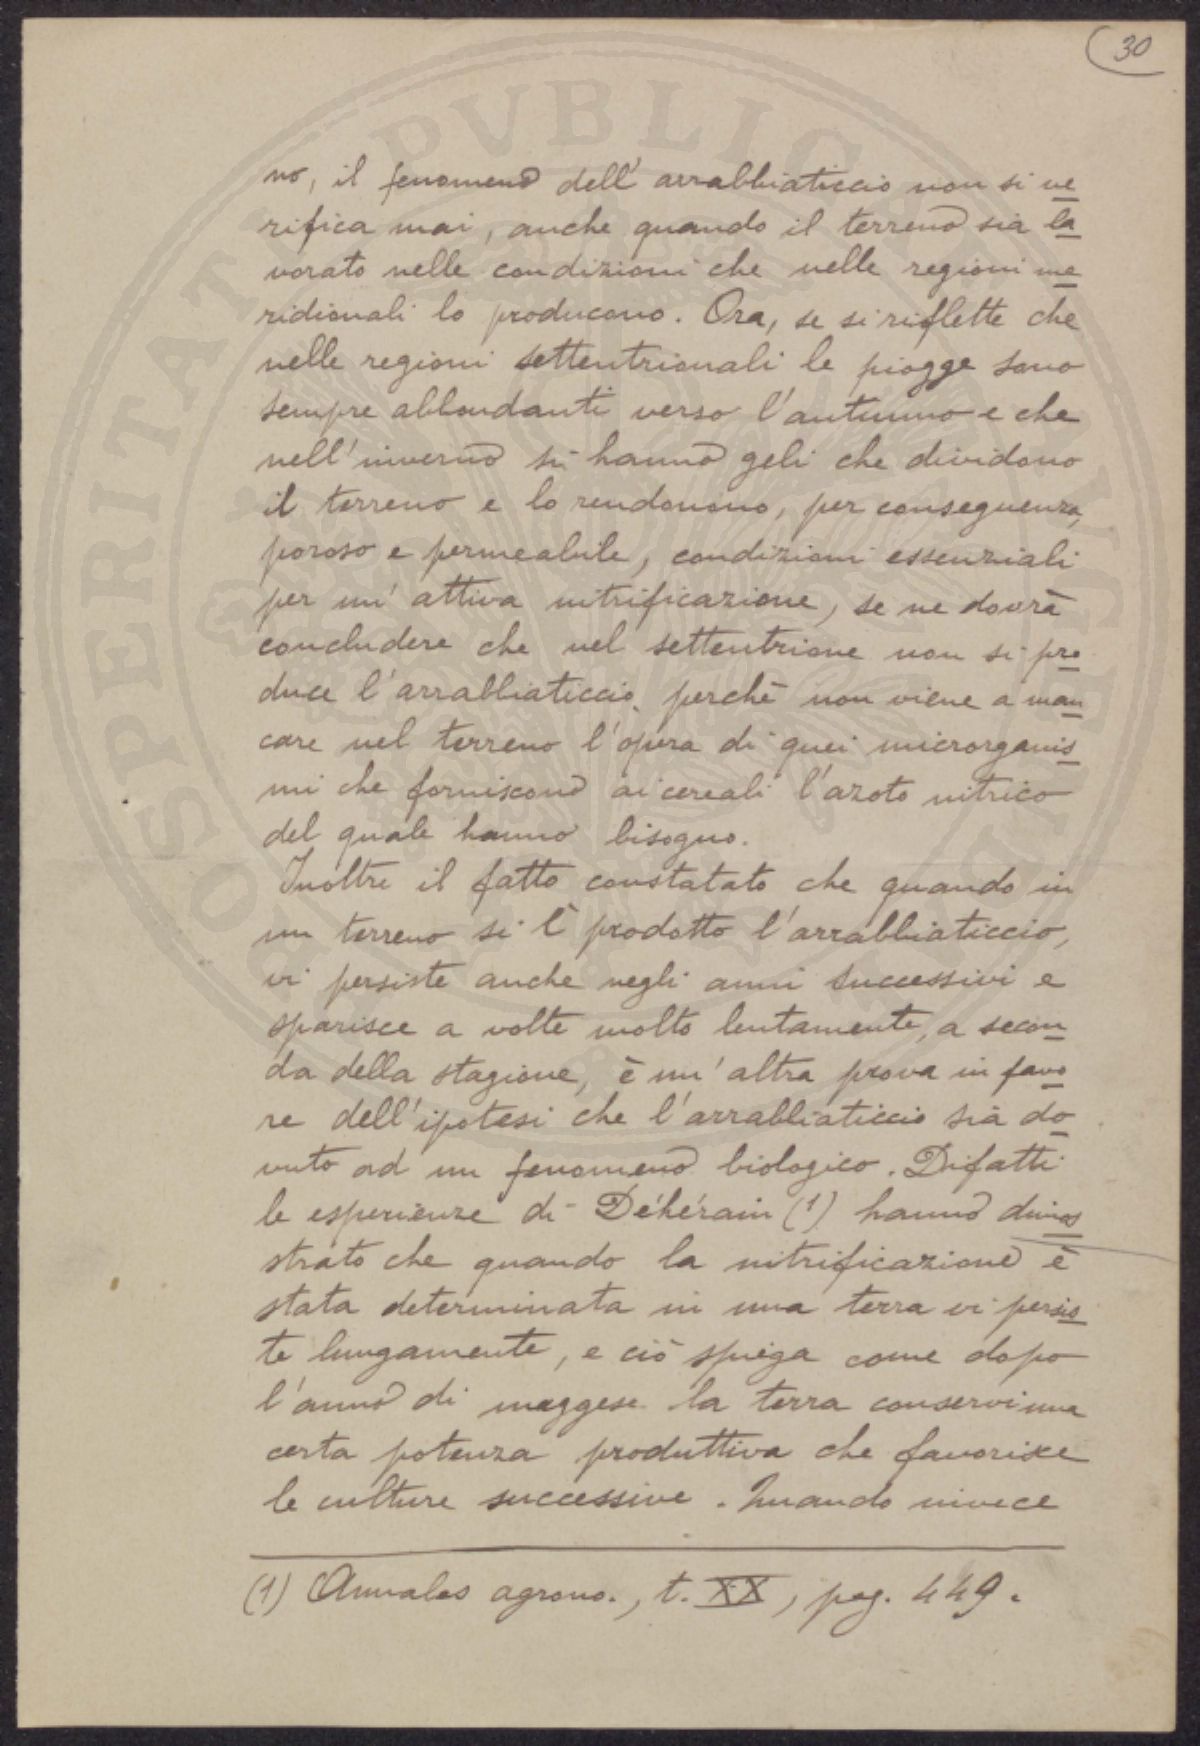 30
no, il fenomeno dell'arrabbiaticcio non si ve
rifica mai, anche quando il terreno sia la
vorato nelle condizioni che nelle regioni me
ridionali lo producono. Ora, se si riflette che
nelle regioni settentrionali le piogge sono
sempre abbondanti verso l'autunno e che
nell'inverno si hanno geli che dividono
il terreno e lo rendonono, per conseguenza,
poroso e permeabile, condizioni essenziali
per un'attiva nitrificazione, se ne dovrà
concludere che nel settentrione non si pro
duce l'arrabbiaticcio, perchè non viene a man
care nel terreno l'opera di quei microrganis
mi che forniscono ai cereali l'azoto nitrico
del quale hanno bisogno.
Inoltre il fatto constatato che quando in
un terreno si è prodotto l'arrabbiaticcio,
vi persiste anche negli anni successivi e
sparisce a volte molto lentamente, a secon
da della stagione, è un'altra prova in favo
re dell'ipotesi che l'arrabbiaticcio sia do
vuto ad un fenomeno biologico. Difatti
le esperienze di Déhérain (1) hanno dimos
strato che quando la nitrificazione è
stata determinata in una terra vi persis
te lungamente, e ciò spiega come dopo
l'anno di maggese la terra conservi una
certa potenza produttiva che favorisce
le culture successive. Quando invece
(1) Annales agrono., t. XX, pag. 449.
PROSPERITATI PVBLICAE